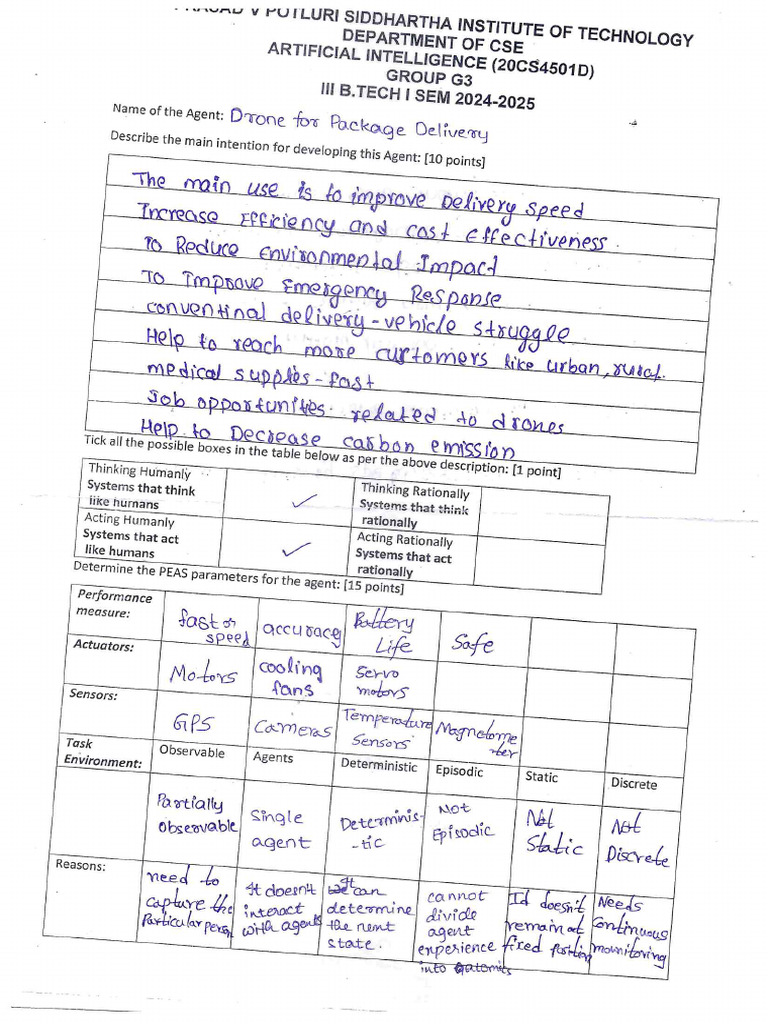 PRASAD V POTLURI SIDDHARTHA INSTITUTE OF TECHNOLOGY
DEPARTMENT OF CSE
ARTIFICIAL INTELLIGENCE (20CS4501D)
GROUP G3
III B.TECH I SEM 2024-2025
Name of the Agent: Drone for Package Delivery
Describe the main intention for developing this Agent: [10 points]
The main use is to improve Delivery Speed
Increase Efficiency and cost effectiveness.
To Reduce Environmental Impact
To Improve Emergency Response
conventinal delivery-vehicle struggle
Help to reach more customers like urban, rural.
medical supplies-fast
Job opportunities related to drones
Help to Decrease carbon emission
Tick all the possible boxes in the table below as per the above description: [1 point]
Thinking Humanly
Systems that think
like humans
✓
Thinking Rationally
Systems that think
rationally
Acting Humanly
Systems that act
like humans
✓
Acting Rationally
Systems that act
rationally
Determine the PEAS parameters for the agent: [15 points]
Performance
measure:
fast or
speed
accuracy
Battery
Life
Safe
Actuators:
Motors
cooling
fans
servo
motors
Sensors:
GPS
Cameras
Temperature
Sensors
Magnetome
ter
Task
Environment:
Observable
Agents
Deterministic
Episodic
Static
Discrete
Partially
Observable
Single
agent
Determinis-
-tic
Not
Episodic
Not
Static
Not
Discrete
Reasons:
need to
capture the
Particular person
It doesn't
interact
with agents
It can
determine
the next
state.
cannot
divide
agent
experience
into
It doesn't
remain at
fixed position
Needs
Continuous
mounitoring